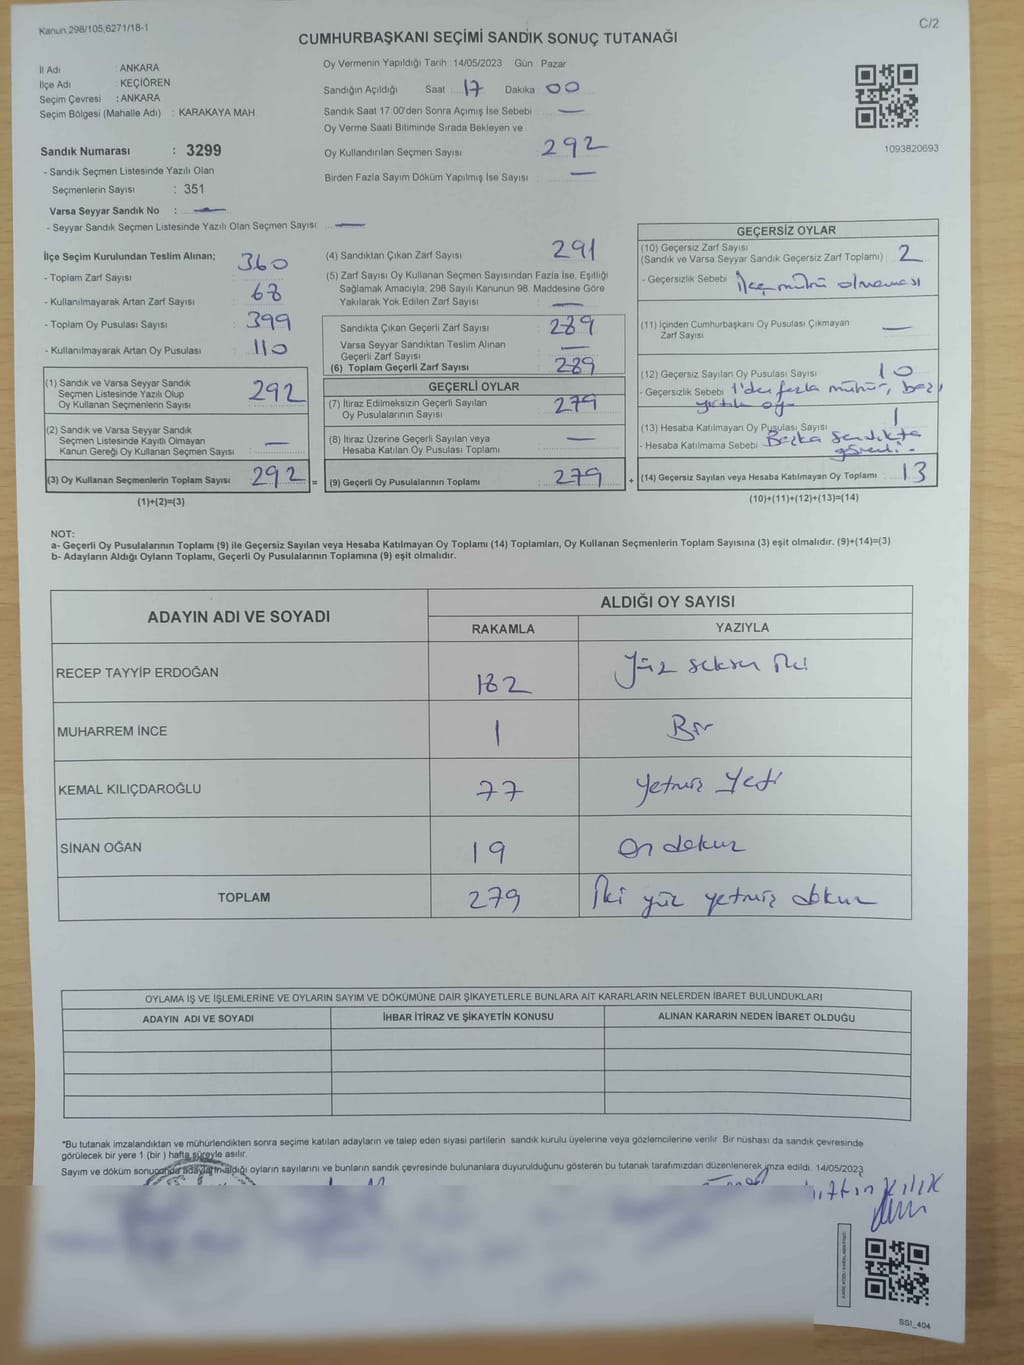 Kanun.298/105,6271/18-1
C/2
CUMHURBAŞKANI SEÇİMİ SANDIK SONUÇ TUTANAĞI
İl Adı : ANKARA
İlçe Adı : KEÇİÖREN
Seçim Çevresi : ANKARA
Seçim Bölgesi (Mahalle Adı) : KARAKAYA MAH.
Sandık Numarası : 3299
- Sandık Seçmen Listesinde Yazılı Olan
Seçmenlerin Sayısı : 351
Varsa Seyyar Sandık No : —
- Seyyar Sandık Seçmen Listesinde Yazılı Olan Seçmen Sayısı: —
Oy Vermenin Yapıldığı Tarih : 14/05/2023 Gün : Pazar
Sandığın Açıldığı Saat 17 Dakika 00
Sandık Saat 17:00'den Sonra Açımış İse Sebebi : —
Oy Verme Saati Bitiminde Sırada Bekleyen ve
Oy Kullandırılan Seçmen Sayısı : 292
Birden Fazla Sayım Döküm Yapılmış İse Sayısı : —
1093820693
İlçe Seçim Kurulundan Teslim Alınan;
- Toplam Zarf Sayısı : 360
- Kullanılmayarak Artan Zarf Sayısı : 68
- Toplam Oy Pusulası Sayısı : 399
- Kullanılmayarak Artan Oy Pusulası : 110
(1) Sandık ve Varsa Seyyar Sandık
Seçmen Listesinde Yazılı Olup
Oy Kullanan Seçmenlerin Sayısı : 292
(2) Sandık ve Varsa Seyyar Sandık
Seçmen Listesinde Kayıtlı Olmayan
Kanun Gereği Oy Kullanan Seçmen Sayısı : —
(3) Oy Kullanan Seçmenlerin Toplam Sayısı : 292 =
(1)+(2)=(3)
(4) Sandıktan Çıkan Zarf Sayısı : 291
(5) Zarf Sayısı Oy Kullanan Seçmen Sayısından Fazla İse, Eşitliği
Sağlamak Amacıyla; 298 Sayılı Kanunun 98. Maddesine Göre
Yakılarak Yok Edilen Zarf Sayısı : —
Sandıkta Çıkan Geçerli Zarf Sayısı : 289
Varsa Seyyar Sandıktan Teslim Alınan
Geçerli Zarf Sayısı : —
(6) Toplam Geçerli Zarf Sayısı : 289
GEÇERLİ OYLAR
(7) İtiraz Edilmeksizin Geçerli Sayılan
Oy Pusulalarının Sayısı : 279
(8) İtiraz Üzerine Geçerli Sayılan veya
Hesaba Katılan Oy Pusulası Toplamı : —
(9) Geçerli Oy Pusulalarının Toplamı : 279 +
GEÇERSİZ OYLAR
(10) Geçersiz Zarf Sayısı
(Sandık ve Varsa Seyyar Sandık Geçersiz Zarf Toplamı) : 2
- Geçersizlik Sebebi : İlçe mührü olmaması
(11) İçinden Cumhurbaşkanı Oy Pusulası Çıkmayan
Zarf Sayısı : —
(12) Geçersiz Sayılan Oy Pusulası Sayısı : 10
- Geçersizlik Sebebi : 1'den fazla mühür, bazı
yırtık oy
(13) Hesaba Katılmayan Oy Pusulası Sayısı : 1
- Hesaba Katılmama Sebebi : Başka sandıkta
(14) Geçersiz Sayılan veya Hesaba Katılmayan Oy Toplamı : 13
(10)+(11)+(12)+(13)=(14)
NOT:
a- Geçerli Oy Pusulalarının Toplamı (9) ile Geçersiz Sayılan veya Hesaba Katılmayan Oy Toplamı (14) Toplamları, Oy Kullanan Seçmenlerin Toplam Sayısına (3) eşit olmalıdır. (9)+(14)=(3)
b- Adayların Aldığı Oyların Toplamı, Geçerli Oy Pusulalarının Toplamına (9) eşit olmalıdır.
ADAYIN ADI VE SOYADI ALDIĞI OY SAYISI
RAKAMLA YAZIYLA
RECEP TAYYİP ERDOĞAN 182 Yüz seksen iki
MUHARREM İNCE 1 Bir
KEMAL KILIÇDAROĞLU 77 yetmiş yedi
SİNAN OĞAN 19 On dokuz
TOPLAM 279 İki yüz yetmiş dokuz
OYLAMA İŞ VE İŞLEMLERİNE VE OYLARIN SAYIM VE DÖKÜMÜNE DAİR ŞİKAYETLERLE BUNLARA AİT KARARLARIN NELERDEN İBARET BULUNDUKLARI
ADAYIN ADI VE SOYADI İHBAR İTİRAZ VE ŞİKAYETİN KONUSU ALINAN KARARIN NEDEN İBARET OLDUĞU
*Bu tutanak imzalandıktan ve mühürlendikten sonra seçime katılan adayların ve talep eden siyasi partilerin sandık kurulu üyelerine veya gözlemcilerine verilir. Bir nüshası da sandık çevresinde
görülecek bir yere 1 (bir ) hafta süreyle asılır.
Sayım ve döküm sonucunda adayların aldığı oyların sayılarını ve bunların sandık çevresinde bulunanlara duyurulduğunu gösteren bu tutanak tarafımızdan düzenlenerek imza edildi. 14/05/2023
SSI_404